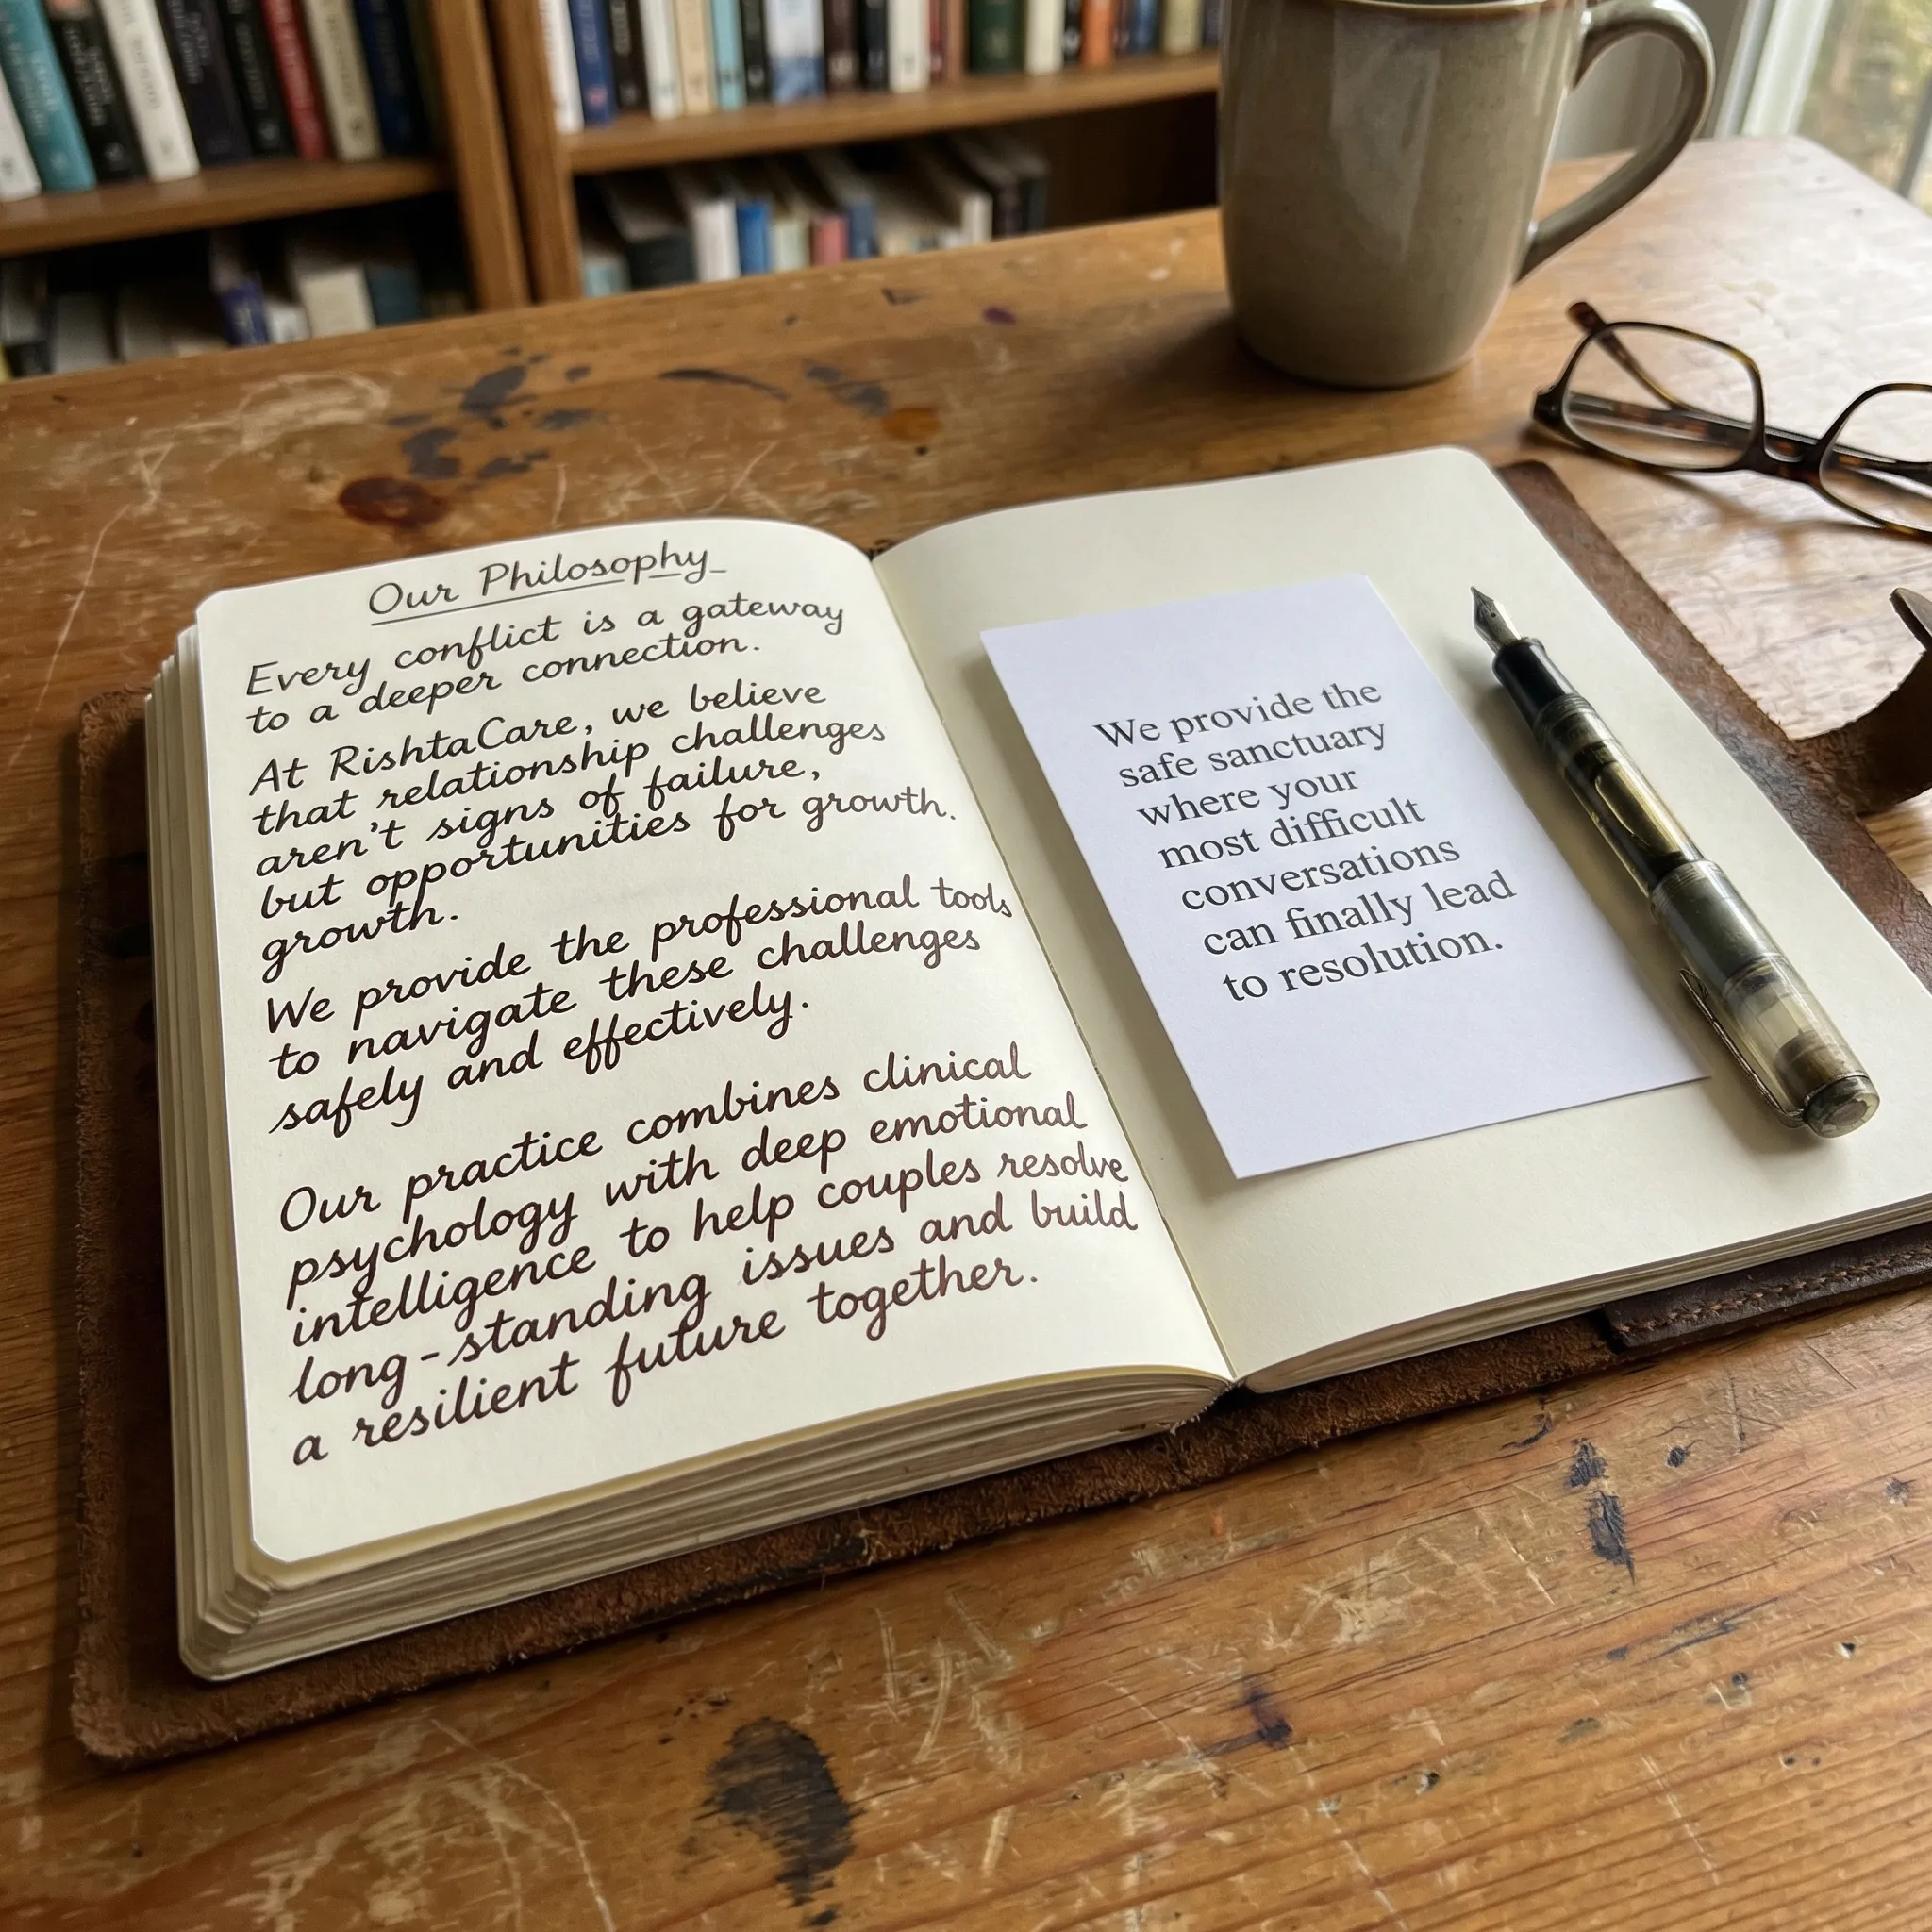 Our Philosophy
Every conflict is a gateway
to a deeper connection.
At RishtaCare, we believe
that relationship challenges
aren't signs of failure,
but opportunities for growth.
growth.
We provide the professional tools
to navigate these challenges
safely and effectively.
Our practice combines clinical
psychology with deep emotional
intelligence to help couples resolve
long-standing issues and build
a resilient future together.
We provide the
safe sanctuary
where your
most difficult
conversations
can finally lead
to resolution.